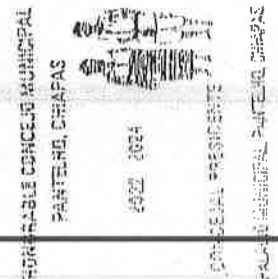 HONORABLE CONCEJO MUNICIPAL
PANTELHO, CHIAPAS
2022 2024
CONCEJAL PRESIDENTE
MUNICIPAL PANTELHO, CHIAPAS